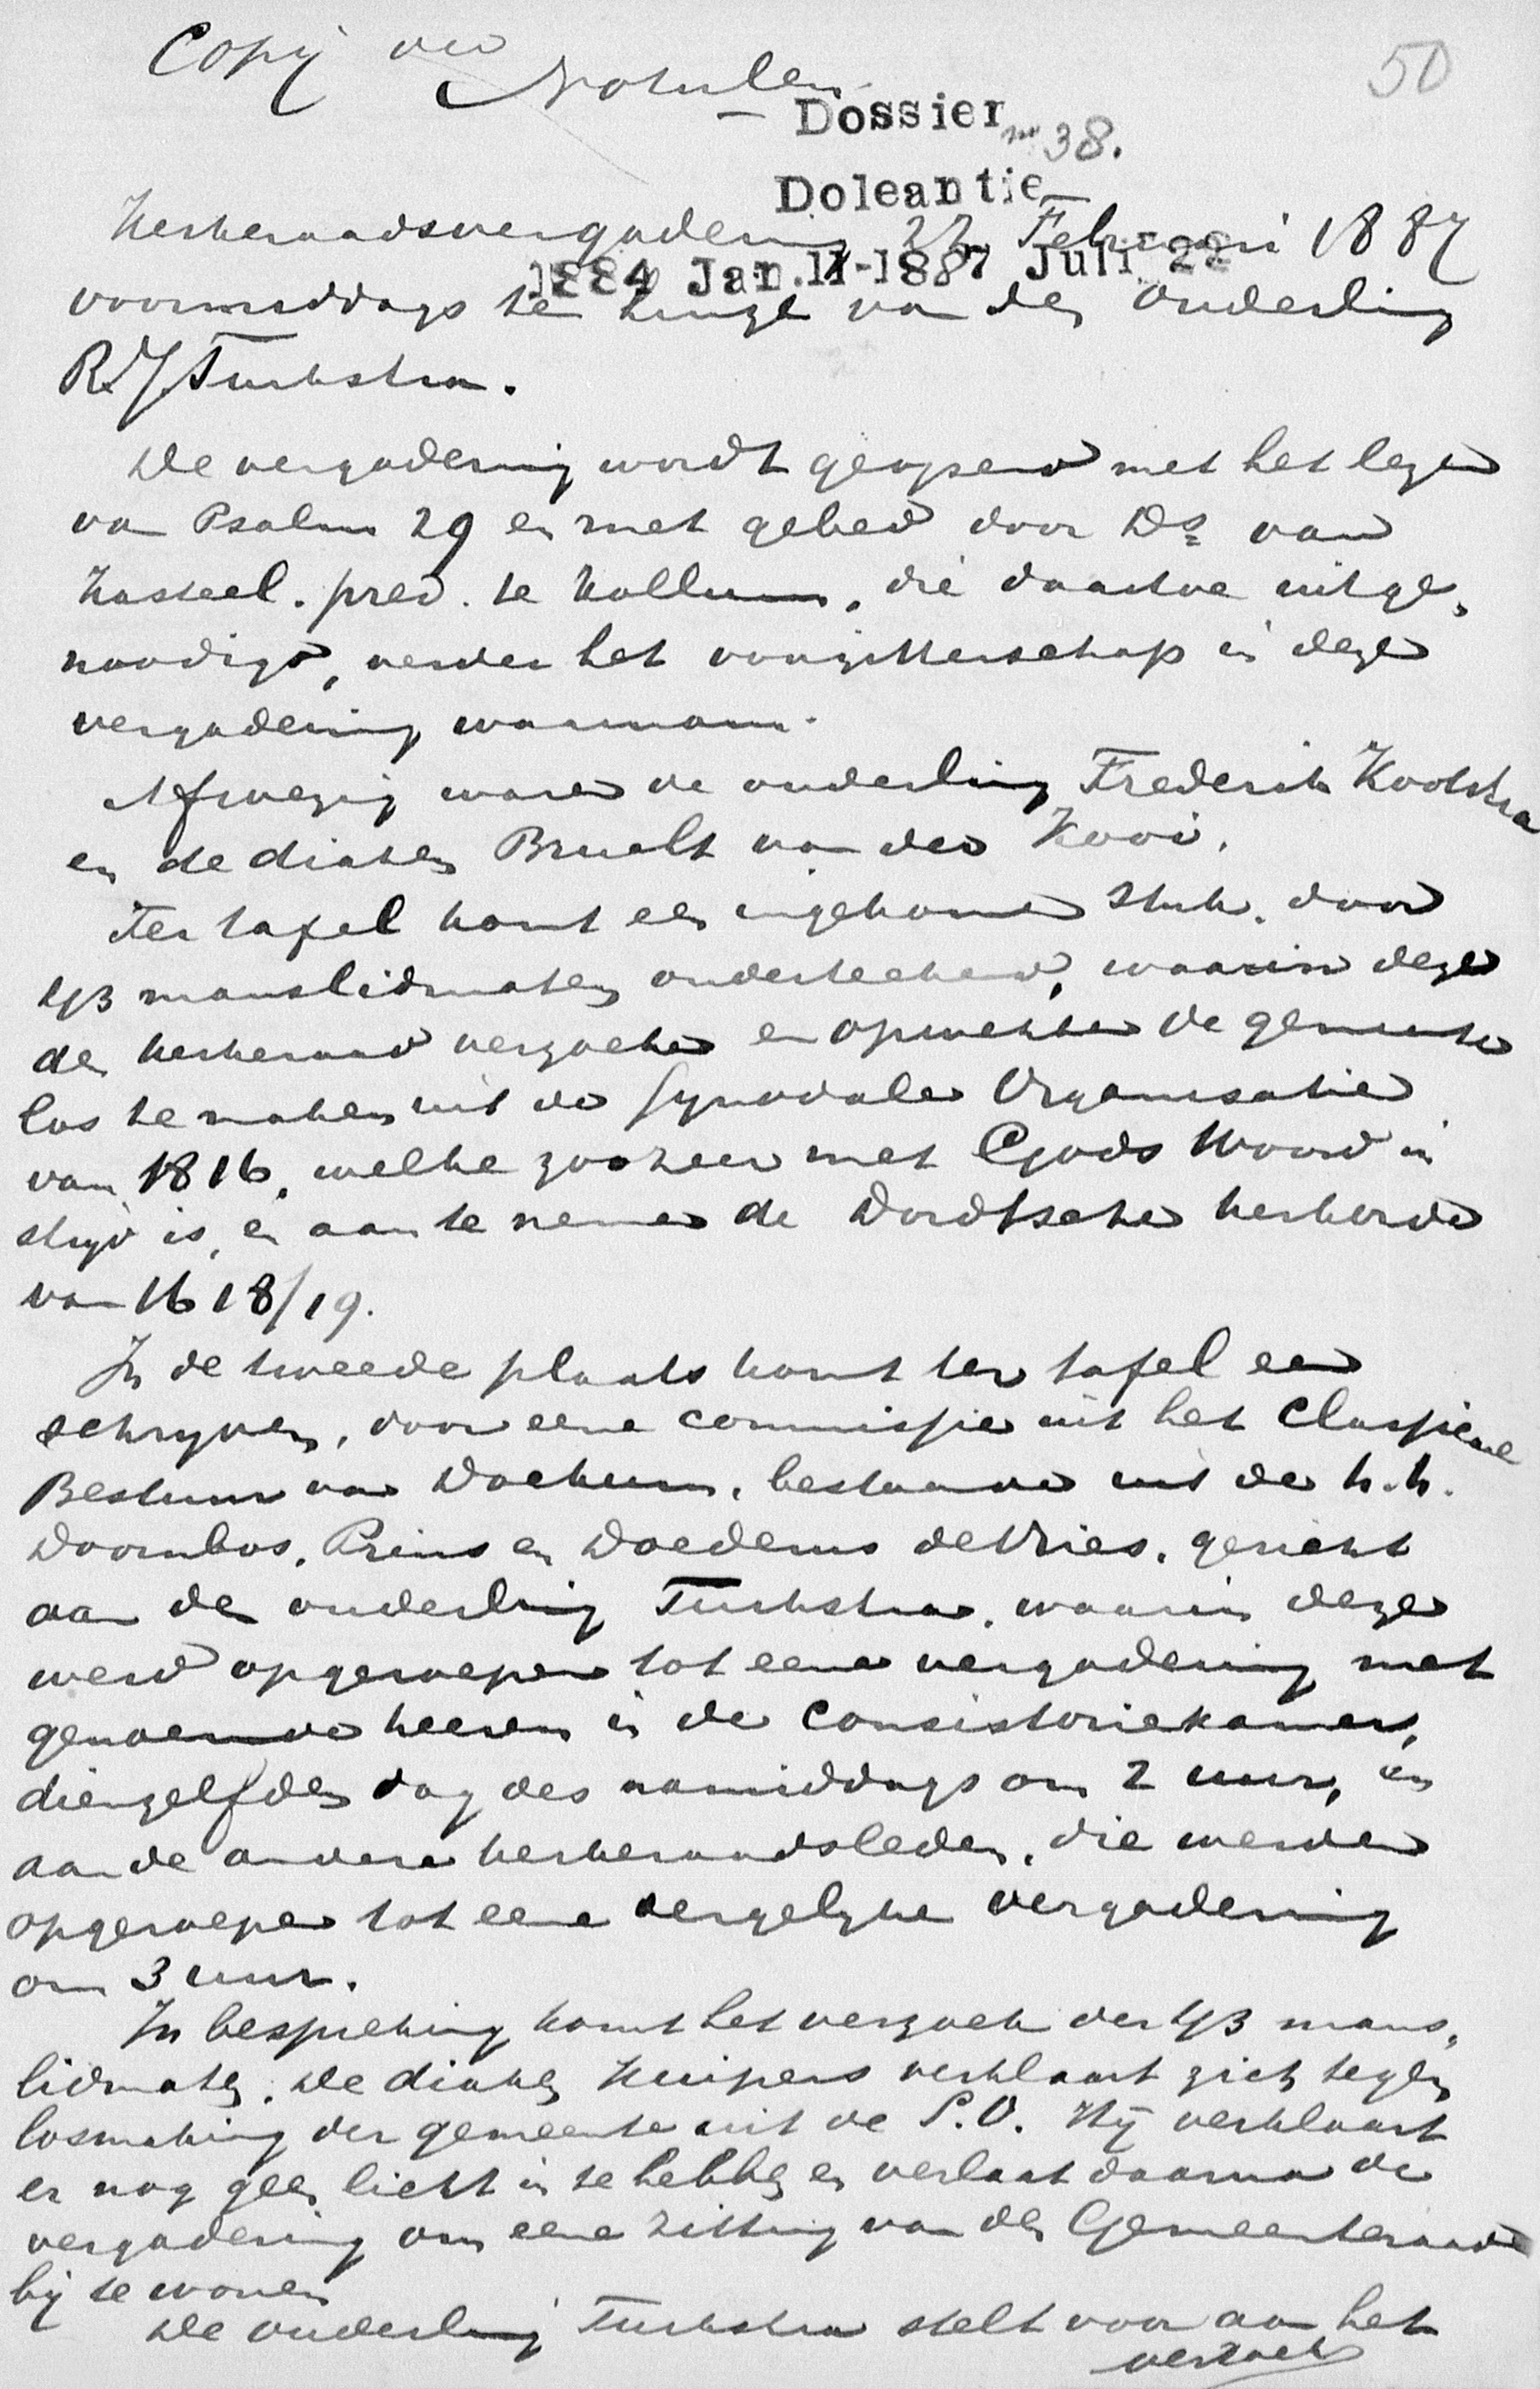 Copij der Notulen
50
Dossier nr 38.
Doleantie
Kerkeraadsvergadering 22 Februari 1887
1884 Jan.11-1887 Juli 22
voormiddags ten huize van den Ouderling
R.J. Turkstra.
De vergadering wordt geopend met het lezen
van Psalm 29 en met gebed door Ds van
Kasteel. pred. te Kollum, die daartoe uitge-
noodigd, verder het voorzitterschap in deze
vergadering waarnam.
Afwezig waren de ouderling Frederik Kootstra
en de diaken Bruelt van der Kooi.
Ter tafel komt een ingekomen stuk, door
43 manslidmaten onderteekend, waarin deze
den kerkeraad verzoeken en opwekken de gemeente
los te maken uit de Synodale Organisatie
van 1816, welke zoozeer met Gods Woord in
strijd is, en aan te nemen de Dordtsche kerkorde
van 1618/19.
In de tweede plaats komt ter tafel een
schrijven, door eene commissie uit het Classicale
Bestuur van Dockum, bestaande uit de h.h.
Doornbos, Prins en Doedens de Vries, gericht
aan den ouderling Turkstra, waarin deze
werd opgeroepen tot eene vergadering met
genoemde heeren in de Consistoriekamer,
dienzelfden dag des namiddags om 2 uur, en
aan de andere kerkeraadsleden, die werden
opgeroepen tot eene dergelijke vergadering
om 3 uur.
In bespreking komt het verzoek der 43 mans-
lidmaten. De diaken Kuipers verklaart zich tegen
losmaking der gemeente uit de S.O. Hij verklaart
er nog geen licht in te hebben en verlaat daarna de
vergadering om eene zitting van den Gemeenteraad
bij te wonen
De ouderling Turkstra stelt voor aan het
verzoek